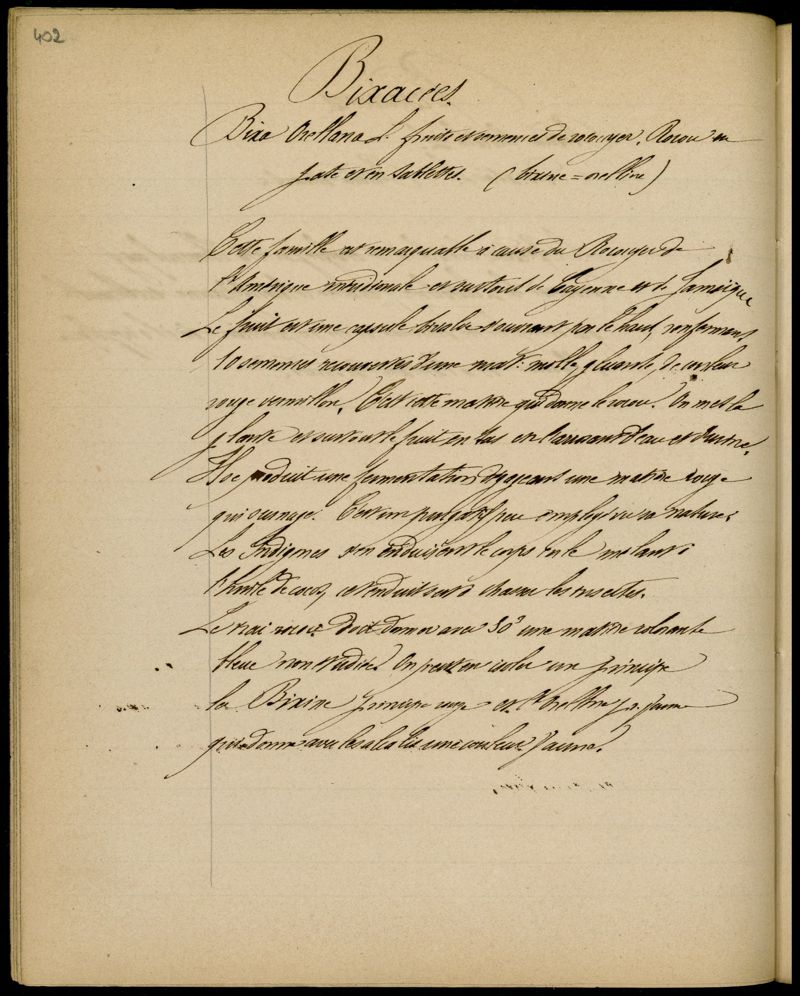 402
Bixacées.
Bixa Orellana L. fruits et semences de rocouyer. Rocou en
pate et en tablettes. (bixine = orelline)
Cette famille est remarquable à cause du Rocouyer de
l'Amérique méridionale et surtout de Cayenne et de Jamaique
Le fruit est une capsule bivalve s'ouvrant par le haut, renfermant
10 semences recouvertes d'une mat: molle, gluante, de couleur
rouge vermillon. C'est cette matière qui donne le rocou. On met la
plante et surtout le fruit en tas en l'arrosant d'eau et d'urine.
Il se produit une fermentation dégageant une matière rouge
qui surnage. C'est un purgatif peu employé vu sa nature.
Les Indigènes s'en enduisent le corps en le mêlant à
l'huile de coco, cet enduit sert à chasser les insectes.
Le vrai rocou doit donner avec SO³ une matière colorante
bleue non étudiée. On peut en isoler un principe
la Bixine principe rouge et l'Orelline p. jaune
qui donne avec les alcalis une couleur jaune.